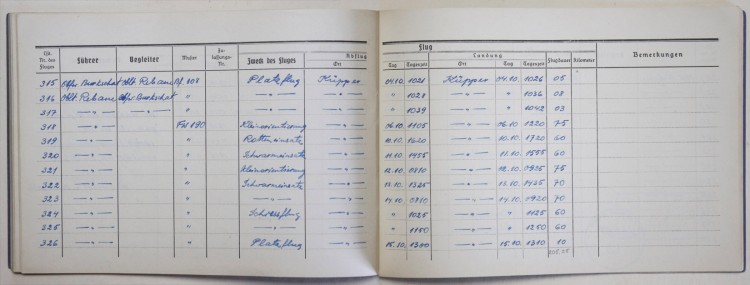 Flug
Lfd. Nr. des Fluges Führer Begleiter Muster Zulassungs-Nr. Zweck des Fluges Abflug Ort Tag Tageszeit Landung Ort Tag Tageszeit Flugdauer Kilometer Bemerkungen
315 Bf. 108 Platzflug Küpper 04.10. 1021 Küpper 04.10. 1026 05
316 " —"— —"— " 1028 —"— " 1036 08
317 —"— —"— " —"— —"— " 1039 —"— " 1042 03
318 —"— FW 190 —"— 06.10. 1105 —"— 06.10. 1220 75
319 —"— " Rotteneinsatz —"— 10.10. 1620 —"— 10.10. 1720 60
320 —"— " Schwarmeinsatz —"— 11.10. 1455 —"— 11.10. 1555 60
321 —"— " —"— 12.10. 0810 —"— 12.10. 0925 75
322 —"— " Schwarmeinsatz —"— 13.10. 1325 —"— 13.10. 1435 70
323 —"— " —"— —"— 14.10. 0810 —"— 14.10. 0920 70
324 —"— " —"— " 1025 —"— " 1125 60
325 —"— " —"— —"— " 1150 —"— " 1250 60
326 —"— " Platzflug —"— 15.10. 1300 —"— 15.10. 1310 10